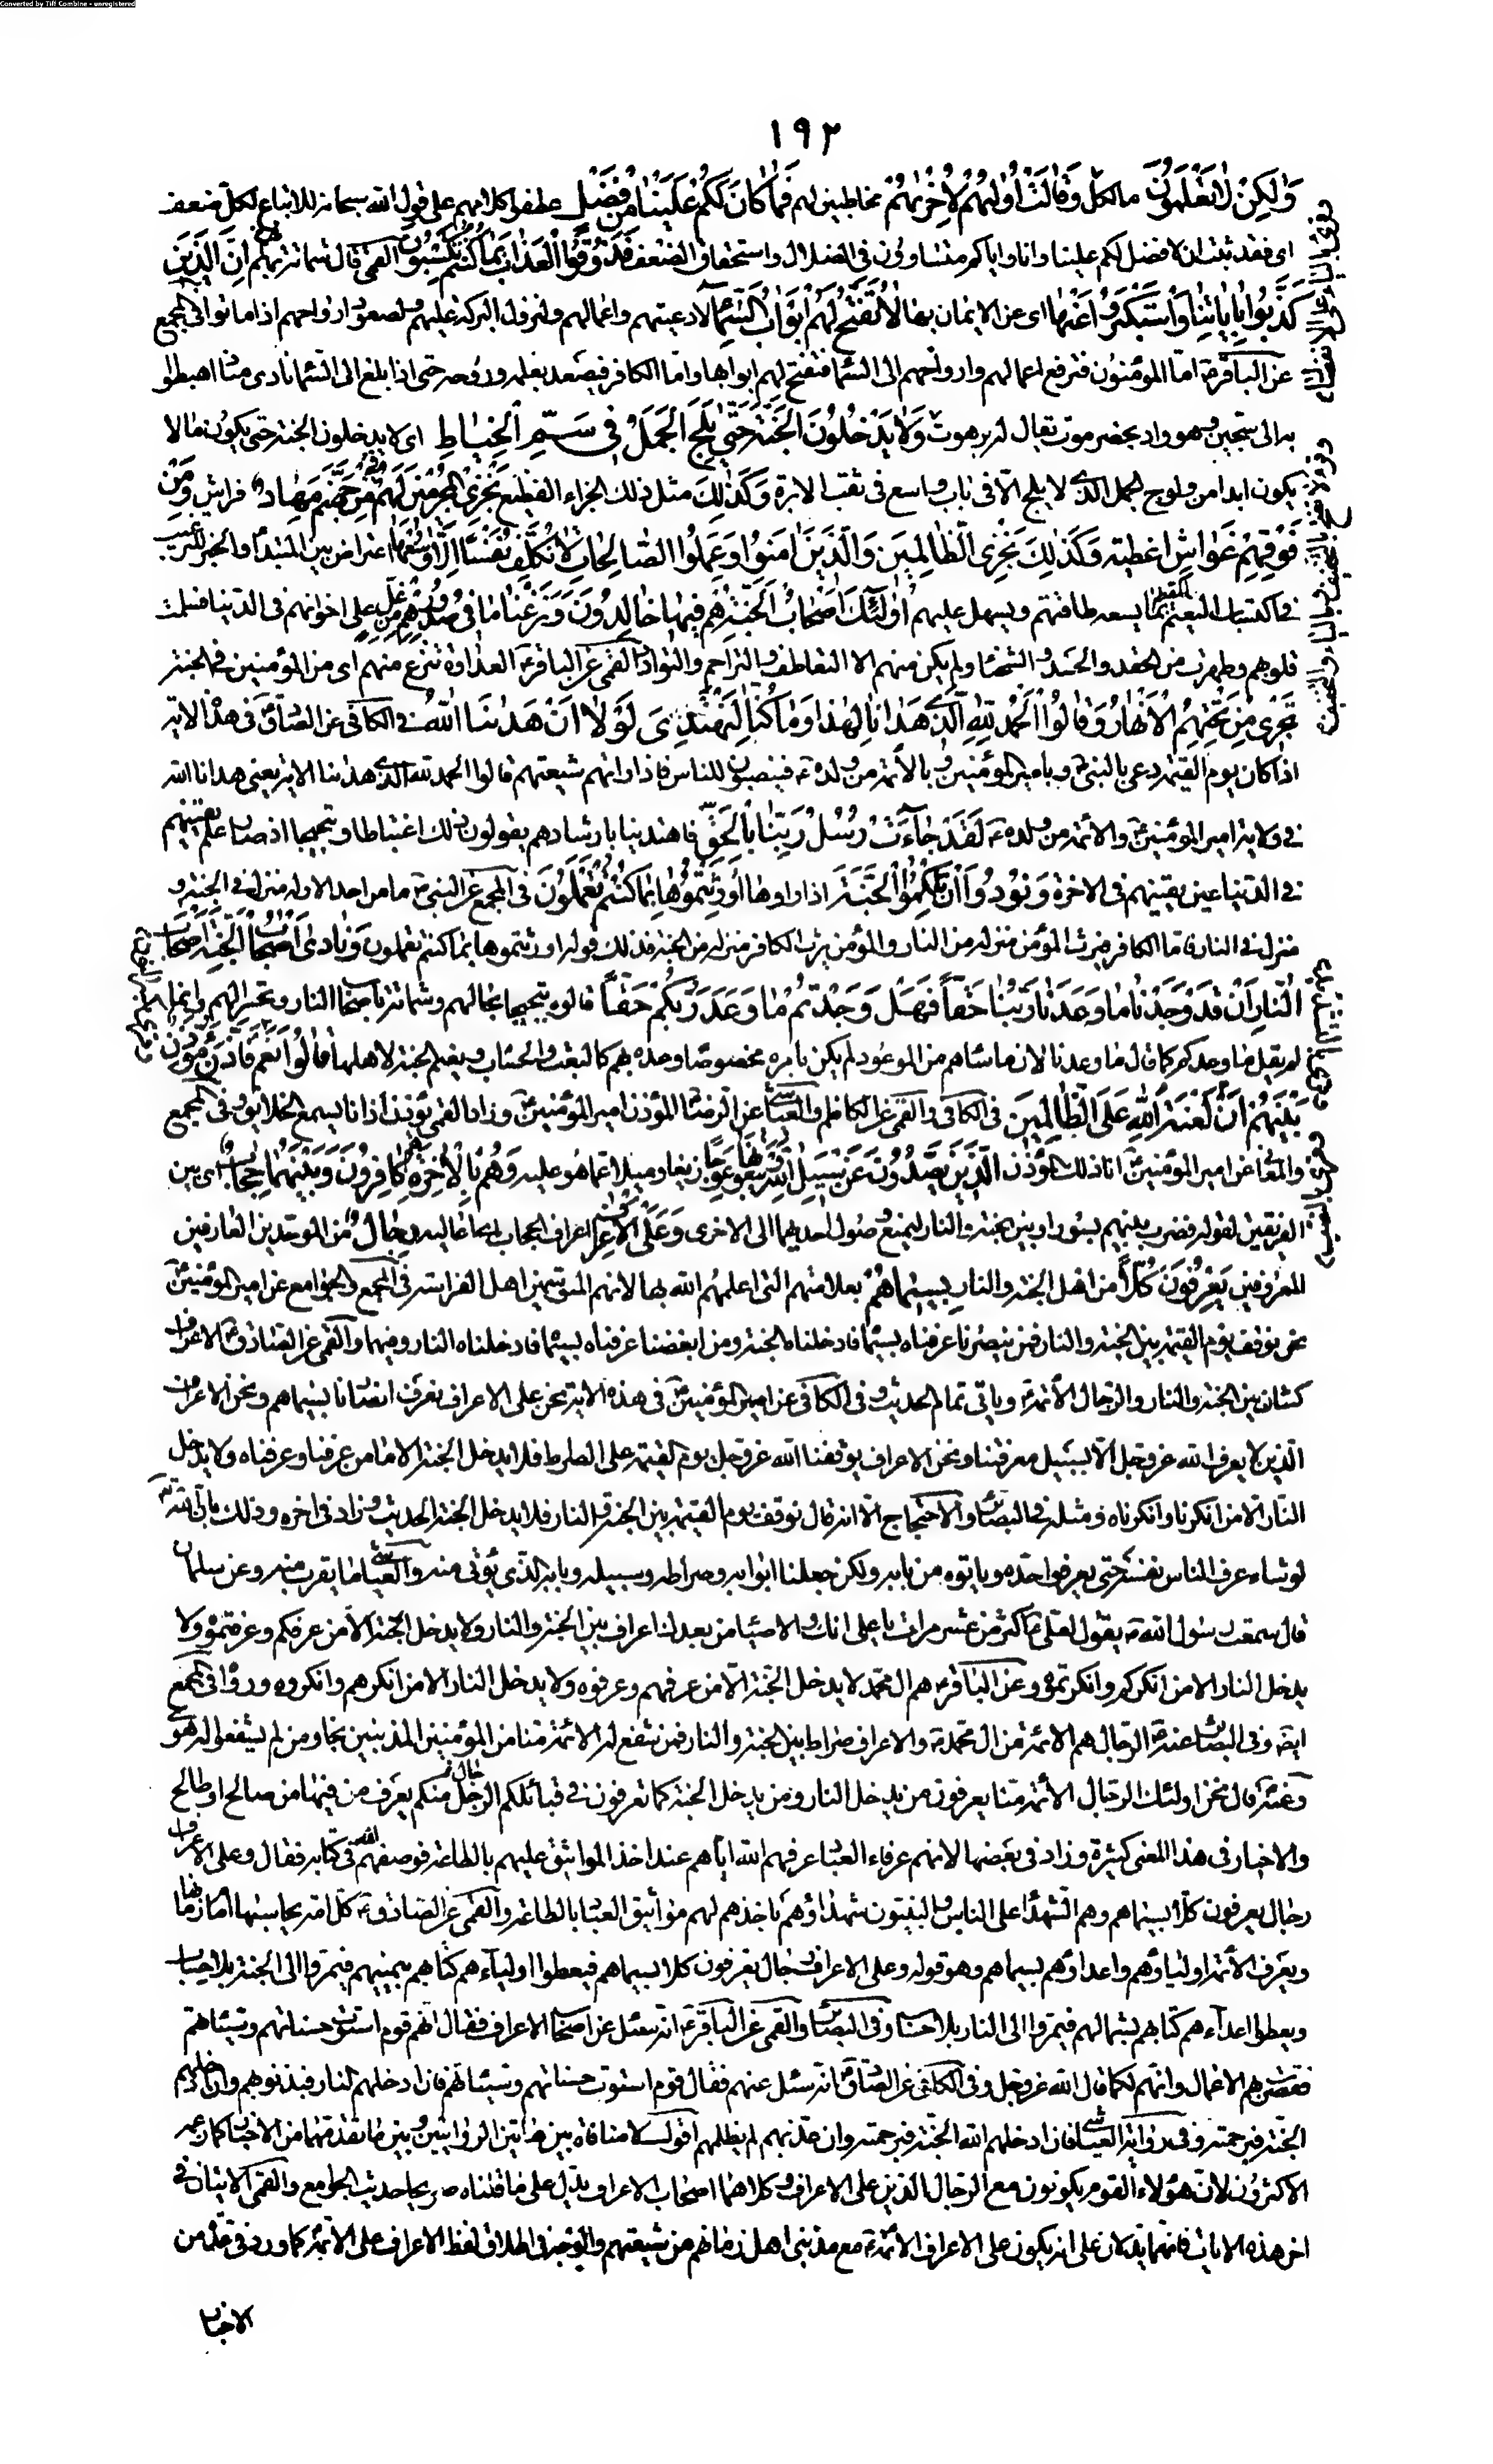 Converted by Tiff Combine - unregistered
١٩٢
وَلٰكِنْ لٰا تَعْلَمُونَ مالكلّ وَقٰالَتْ أُولٰيهُمْ لِأُخْرٰيهُمْ مخاطبين لهم فَمٰا كٰانَ لَكُمْ عَلَيْنٰا مِنْ فَضْلٍ عطفوا كلامهم على قول الله سبحانه للاتباع لكلّ ضعف
اى فقد ثبت ان لا فضل لكم علينا وانا واياكم متساوون فى الضلال واستحقاق الضعف فَذُوقُوا الْعَذٰابَ بِمٰا كُنْتُمْ تَكْسِبُونَ القمى قال شماتة بهم إِنَّ الَّذِينَ
كَذَّبُوا بِآيٰاتِنٰا وَاسْتَكْبَرُوا عَنْهٰا اى عن الايمان بها لٰا تُفَتَّحُ لَهُمْ أَبْوٰابُ السَّمٰاءِ لادعيتهم واعمالهم ولنزول البركة عليهم ولصعود ارواحهم اذا ماتوا فى المجمع
عن الباقر ع امّا المؤمنون فترفع اعمالهم وارواحهم الى السّماء فتفتح لهم ابوابها وامّا الكافر فيصعد بعمله وروحه حتى اذا بلغ الى السّماء نادى مناد اهبطوا
به الى سجّين وهو واد بحضرموت يقال له برهوت وَلٰا يَدْخُلُونَ الْجَنَّةَ حَتّٰى يَلِجَ الْجَمَلُ فِى سَمِّ الْخِيٰاطِ اى لا يدخلون الجنة حتى يكون ما لا
يكون ابدا من ولوج الجمل الّذى لا يلج الّا فى باب واسع فى ثقب الابرة وَكَذٰلِكَ مثل ذلك الجزاء الفظيع نَجْزِى الْمُجْرِمِينَ لَهُمْ مِنْ جَهَنَّمَ مِهٰادٌ فراش وَمِنْ
فَوْقِهِمْ غَوٰاشٍ اغطية وَكَذٰلِكَ نَجْزِى الظّٰالِمِينَ وَالَّذِينَ آمَنُوا وَعَمِلُوا الصّٰالِحٰاتِ لٰا نُكَلِّفُ نَفْسًا إِلّٰا وُسْعَهٰا اعتراض بين المبتدأ والخبر للترغيب
فى اكتساب النعيم المقيم بما يسعه طاقتهم ويسهل عليهم أُولٰئِكَ أَصْحٰابُ الْجَنَّةِ هُمْ فِيهٰا خٰالِدُونَ وَنَزَعْنٰا مٰا فِى صُدُورِهِمْ مِنْ غِلٍّ على اخوانهم فى الدنيا فسلمت
قلوبهم وطهرت من الحقد والحسد والشحناء ولم يكن منهم الا التعاطف والتراحم والتوادّ القمى عن الباقر ع العداوة تنزع منهم اى من المؤمنين فى الجنة
تَجْرِى مِنْ تَحْتِهِمُ الْأَنْهٰارُ وَقٰالُوا الْحَمْدُ لِلّٰهِ الَّذِى هَدٰانٰا لِهٰذٰا وَمٰا كُنّٰا لِنَهْتَدِىَ لَوْلٰا أَنْ هَدٰىنَا اللّٰهُ فى الكافى عن الصادق ع فى هذه الاية
اذا كان يوم القيمة دعى بالنبى ص وبامير المؤمنين وبالائمة من ولده ع فينصبون للناس فاذا راتهم شيعتهم قالوا الحمد لله الذى هدينا الاية يعنى هدانا الله
فى ولاية امير المؤمنين والائمة من ولده ع لَقَدْ جٰاءَتْ رُسُلُ رَبِّنٰا بِالْحَقِّ فاهتدينا بارشادهم يقولون ذلك اغتباطا وتبجحا اذ صار علم يقينهم
فى الدنيا عين يقينهم فى الاخرة وَنُودُوا أَنْ تِلْكُمُ الْجَنَّةُ اذا راوها أُورِثْتُمُوهٰا بِمٰا كُنْتُمْ تَعْمَلُونَ فى المجمع عن النبى ص ما من احد الا وله منزل فى الجنة و
منزل فى النار فامّا الكافر فيرث المؤمن منزله من النار والمؤمن يرث الكافر منزله من الجنة فذلك قوله اورثتموها بما كنتم تعملون وَنٰادىٰ أَصْحٰابُ الْجَنَّةِ أَصْحٰابَ
النّٰارِ أَنْ قَدْ وَجَدْنٰا مٰا وَعَدَنٰا رَبُّنٰا حَقًّا فَهَلْ وَجَدْتُمْ مٰا وَعَدَ رَبُّكُمْ حَقًّا قالوه تبجحا بحالهم وشماتة باصحاب النار وتحسيرا لهم وانما
لم يقل ما وعدكم كما قال ما وعدنا لان ما ساءهم من الموعود لم يكن باسره مخصوصا وعده بهم كالبعث والحساب ونعيم الجنة لاهلها قٰالُوا نَعَمْ فَأَذَّنَ مُؤَذِّنٌ
بَيْنَهُمْ أَنْ لَعْنَةُ اللّٰهِ عَلَى الظّٰالِمِينَ فى الكافى والقمى عن الكاظم والعياشى عن الرضا المؤذن امير المؤمنين وزاد القمى يؤذن اذانا يسمع الخلايق وفى المجمع
والمعانى عن امير المؤمنين انا ذلك المؤذن الَّذِينَ يَصُدُّونَ عَنْ سَبِيلِ اللّٰهِ وَيَبْغُونَهٰا عِوَجًا زيغا وميلا عما هو عليه وَهُمْ بِالْآخِرَةِ كٰافِرُونَ وَبَيْنَهُمٰا حِجٰابٌ اى بين
الفريقين لقوله فضرب بينهم بسور او بين الجنة والنار ليمنع وصول احديهما الى الاخرى وَعَلَى الْأَعْرٰافِ اعراف الحجاب اى اعاليه رِجٰالٌ من الموحّدين العارفين
المعروفين يَعْرِفُونَ كُلًّا من اهل الجنة والنار بِسِيمٰاهُمْ بعلامتهم التى اعلمهم الله بها لانهم المتوسّمين اهل الفراسة فى المجمع والجوامع عن امير المؤمنين
نحن نوقف يوم القيمة بين الجنة والنار فمن ينصرنا عرفناه بسيماه فادخلناه الجنة ومن ابغضنا عرفناه بسيماه فادخلناه النار وفيهما والقمى عن الصادق ع الاعراف
كثبان بين الجنة والنار والرجال الائمة وياتى تمام الحديث وفى الكافى عن امير المؤمنين فى هذه الاية نحن على الاعراف نعرف انصارنا بسيماهم ونحن الاعراف
الذين لا يعرف الله عزوجل الّا بسبيل معرفتنا ونحن الاعراف يوقفنا الله عزوجل يوم القيمة على الصراط فلا يدخل الجنة الا من عرفنا وعرفناه ولا يدخل
النار الا من انكرنا وانكرناه ومثله فى البصائر والاحتجاج الّا انه قال نوقف يوم القيمة بين الجنة والنار فلا يدخل الجنة الحديث وزاد فى اخره وذلك بان الله
لو شاء عرف الناس نفسه حتى يعرفوا حدّه وياتوه من بابه ولكن جعلنا ابوابه وصراطه وسبيله وبابه الذى يؤتى منه والعياشى ما يقرب منه وعن سلمان
قال سمعت رسول الله ص يقول لعلى ع اكثر من عشر مرات يا على انك والاوصياء من بعدك اعراف بين الجنة والنار ولا يدخل الجنة الا من عرفكم وعرفتموه ولا
يدخل النار الا من انكركم وانكرتموه وعن الباقر ع هم ال محمد لا يدخل الجنة الّا من عرفهم وعرفوه ولا يدخل النار الا من انكرهم وانكروه ورواه فى المجمع
ايضا وفى البصائر عنه الرجال هم الائمة من ال محمد ص والاعراف صراط بين الجنة والنار فمن شفع له الائمة منا من المؤمنين المذنبين نجا ومن لم يشفعوا له هوى
وعنه قال نحن اولئك الرجال الائمة منا يعرفون من يدخل النار ومن يدخل الجنة كما تعرفون فى قبائلكم الرجل منكم يعرف من فيها من صالح او طالح
والاخبار فى هذا المعنى كثيرة وزاد فى بعضها لانهم عرفاء العباد عرفهم الله اياهم عند اخذ المواثيق عليهم بالطاعة فوصفهم الله فى كتابه فقال وعلى الاعراف
رجال يعرفون كلا بسيماهم وهم الشهداء على الناس والنبيّون شهداؤهم باخذهم لهم مواثيق العباد بالطاعة والقمى عن الصادق ع كل امة يحاسبها امام زمانها
ويعرف الائمة اولياؤهم واعداؤهم بسيماهم وهو قوله وعلى الاعراف رجال يعرفون كلا بسيماهم فيعطوا اولياءهم كتابهم بيمينهم فيمرّوا الى الجنة بلا حساب
ويعطوا اعداءهم كتابهم بشمالهم فيمرّوا الى النار بلا حساب وفى البصائر والقمى عن الباقر ع انه سئل عن اصحاب الاعراف فقال انهم قوم استوت حسناتهم وسيئاتهم
فقصرت بهم الاعمال وانهم لكما قال الله عزوجل وفى الكافى عن الصادق انه سئل عنهم فقال قوم استوت حسناتهم وسيئاتهم فان ادخلهم النار فبذنوبهم وان ادخلهم
الجنة فبرحمته وفى رواية العياشى فان ادخلهم الله الجنة فبرحمته وان عذبهم لم يظلمهم اقول لا منافاة بين هاتين الروايتين وبين ما تقدمهما من الاخبار كما زعمه
الاكثرون لان هؤلاء القوم يكونون مع الرجال الذين على الاعراف وكلاهما اصحاب الاعراف يدل على ما قلناه صريحا حديث الجوامع والقمى الاتيان فى
اخر هذه الايات فانهما يدلان على انه يكون على الاعراف الائمة ع مع مذنبى اهل زمانهم من شيعتهم والوجه فى اطلاق لفظ الاعراف على الائمة كما ورد فى عدّة من
الاخبار